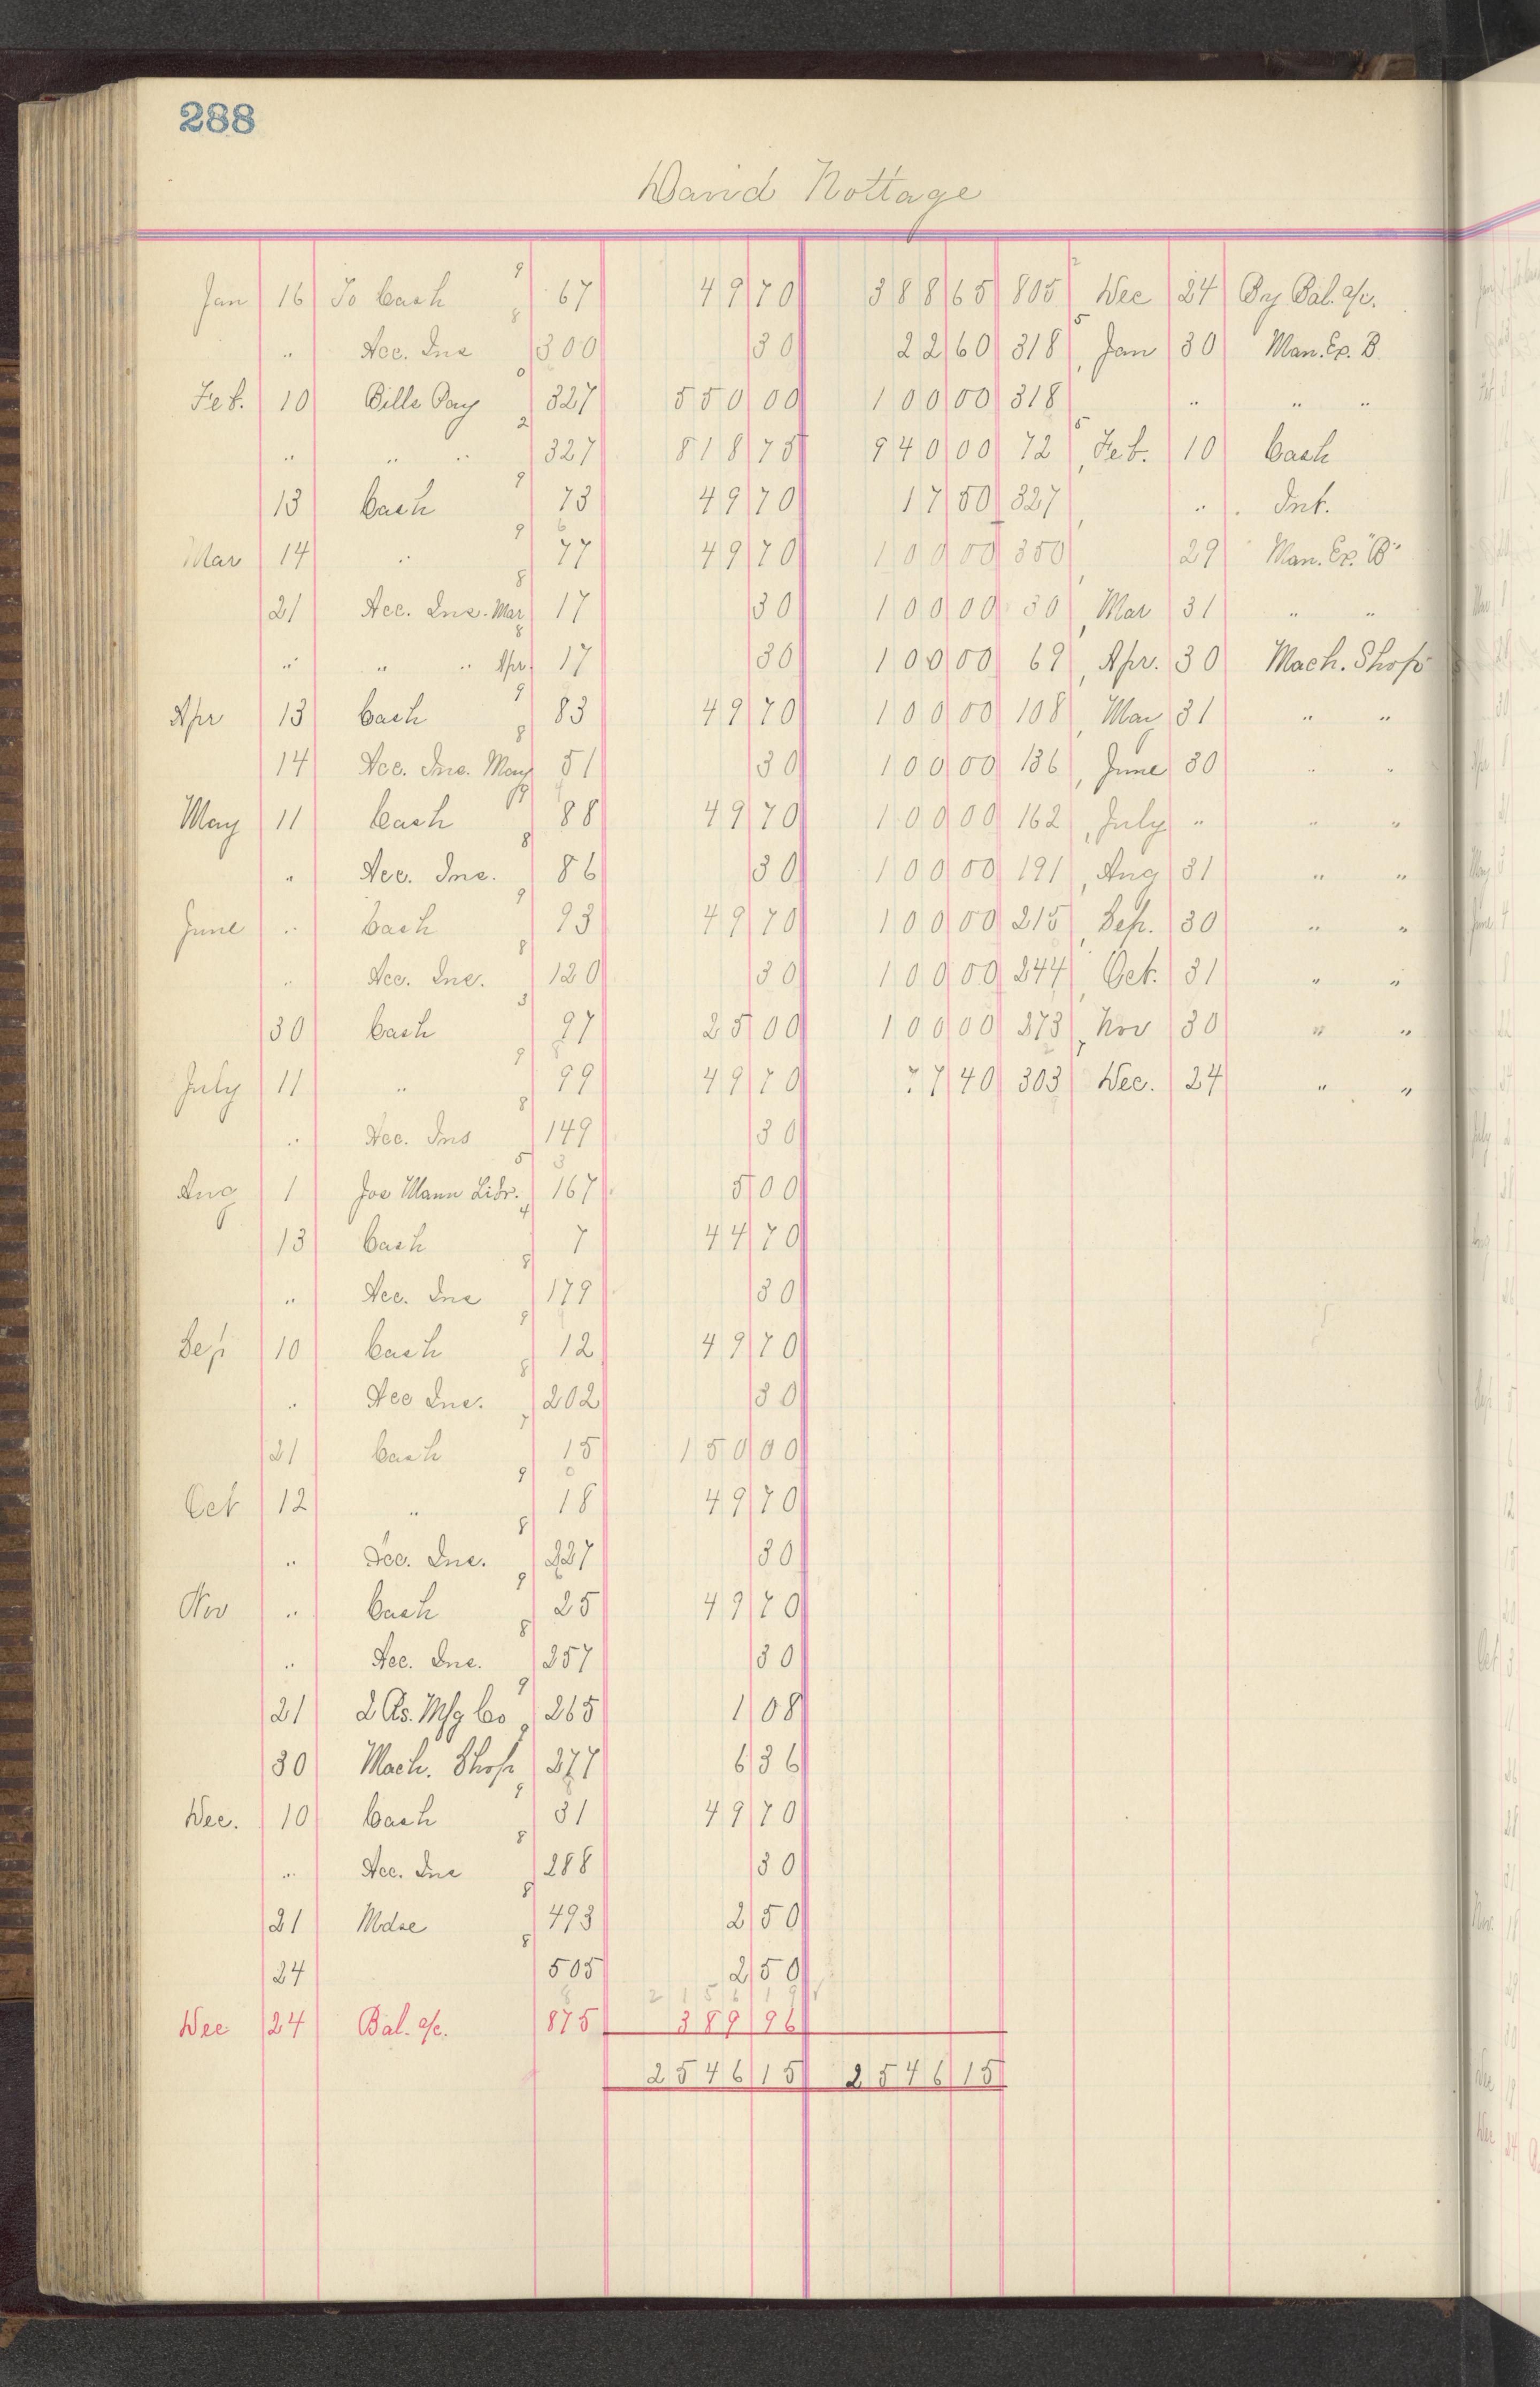 288
David Nottage
Jan 16 To Cash 9 67 49 70 388 65 805 2 Dec 24 By Bal. a/c.
" Acc. Ins 8 300 30 22 60 318 5 Jan 30 Man. Ex. B
Feb. 10 Bills Pay 0 327 550 00 100 00 318 " " "
" " " 2 327 818 75 940 00 72 5 Feb. 10 Cash
13 Cash 9 73 49 70 17 50 327 " Int.
Mar 14 " 9 77 49 70 100 00 350 29 Man. Ex. "B"
21 Acc. Ins. Mar 8 17 30 100 00 30 Mar 31 " "
" " " Apr. 8 17 30 100 00 69 Apr. 30 Mach. Shop
Apr 13 Cash 9 83 49 70 100 00 108 May 31 " "
14 Acc. Ins. May 8 51 30 100 00 136 June 30 " "
May 11 Cash 9 88 49 70 100 00 162 July " " "
" Acc. Ins. 8 86 30 100 00 191 Aug 31 " "
June " Cash 9 93 49 70 100 00 215 Sep. 30 " "
" Acc. Ins. 8 120 30 100 00 244 Oct. 31 " "
30 Cash 3 97 25 00 100 00 273 Nov 30 " "
July 11 " 9 99 49 70 77 40 303 7 Dec. 24 " "
" Acc. Ins 8 149 30
Aug 1 Jos Mann Libr. 5 167 5 00
13 Cash 4 7 44 70
" Acc. Ins 8 179 30
Sep 10 Cash 9 12 49 70
" Acc Ins. 8 202 30
21 Cash 7 15 150 00
Oct 12 " 9 18 49 70
" Acc. Ins. 8 227 30
Nov " Cash 9 25 49 70
" Acc. Ins. 8 257 30
21 2 As. Mfg Co 9 265 1 08
30 Mach. Shop 277 6 36
Dec. 10 Cash 9 31 49 70
" Acc. Ins 8 288 30
21 Mdse 8 493 2 50
24 8 505 2 50
2156 19
Dec 24 Bal. a/c. 875 389 96
2546 15 2546 15